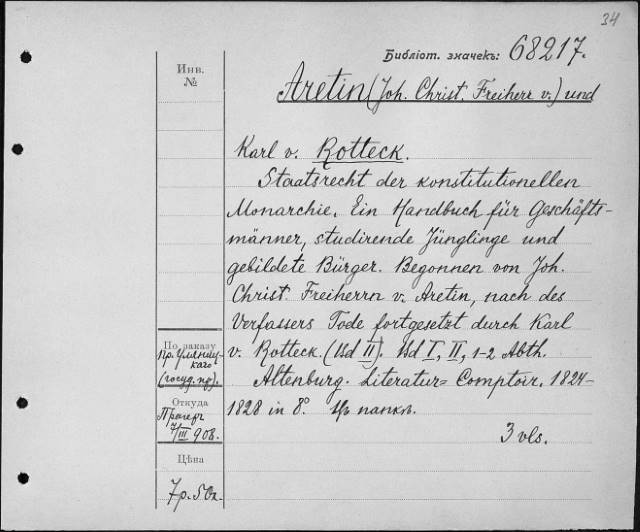 34
Библіот. значекъ: 68217.
Инв.
№
Aretin (Joh. Christ. Freiherr v.) und
Karl v. Rotteck.
Staatsrecht der konstitutionellen
Monarchie. Ein Handbuch für Geschäfts-
männer, studirende Jünglinge und
gebildete Bürger. Begonnen von Joh.
Christ. Freiherrn v. Aretin, nach des
Verfassers Tode fortgesetzt durch Karl
v. Rotteck. (Bd II). Bd I, II, 1-2 Abth.
Altenburg. Literatur= Comptoir. 1824-
1828 in 8°. Въ папкѣ.
3 vls.
По заказу
Пр. Уляниц-
каго
(госуд. пр).
Откуда
Прагеръ
7/III 908.
Цѣна
7р. 50к.